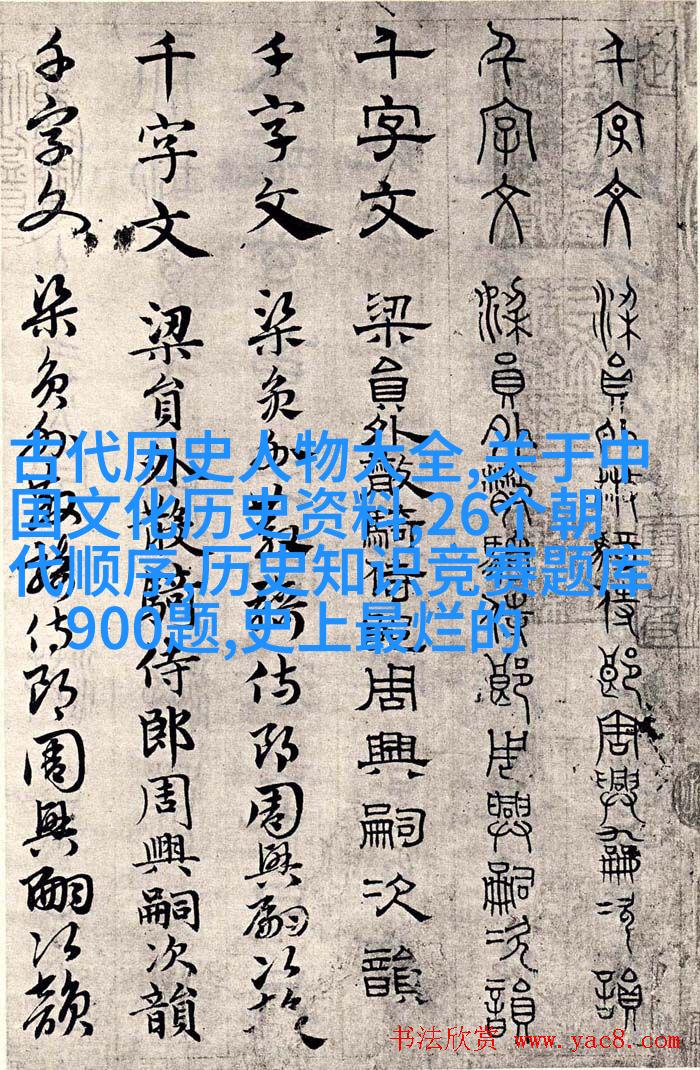 千字文 梁員外散騎侍郎周興嗣次韻
千字文 梁員外散騎侍郎周興嗣次韻
千字文 梁員外散騎侍郎周興嗣次韻
千字文 梁員外散騎侍郎周興嗣次韻
千字文 梁員外散騎侍郎周興嗣次韻
千字文 梁員外散騎侍郎周興嗣次韻
古代历史人物大全,关于中
国文化历史资料,26个朝
代顺序,历史知识竞赛题库
,900题,史上最烂的
书法欣赏 www.yac8.com